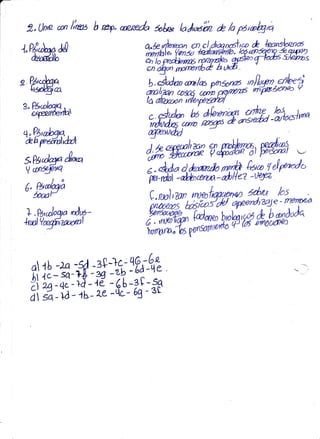 2. Une con líneas la resp. correcta sobre la división de la psicología
1. Psicología del desarrollo
2. Psicología fisiológica
3. Psicología experimental
4. Psicología de la personalidad
5. Psicología clínica y consejería
6. Psicología social
7. Psicología indus-
trial y organizacional
a. se interesan en el diagnóstico de trastornos
mentales y en su tratamiento, los consejeros se ocupan
en los problemas normales de ajuste q todos sufrimos
en algún momento de la vida.
b. estudian como las personas influyen entre si
analizan cosas como primeras impresiones y
la atracción interpersonal
c. estudian las diferencias entre los
individuos como rasgos de ansiedad - autoestima
agresividad
d. se especializan en problemas prácticos
como seleccionar y capacitar al personal
e. estudia el desarrollo mental físico y el periodo
pre-natal - adolescencia - adultez - vejez
f. realizan investigaciones sobre los
procesos básicos del aprendizaje - memoria
sensación
g. investigan factores biológicos de la conducta
humana, los pensamientos y las emociones
a) 1b - 2a - 5d - 3f - 7c - 4G - 6e
b) 1c - 5a - 7f - 3g - 2b - 6d - 4e.
c) 2g - 4c - 7d - 1e - 6b - 3f - 5a
d) 5a - 7d - 1b - 2e - 4c - 6g - 3f